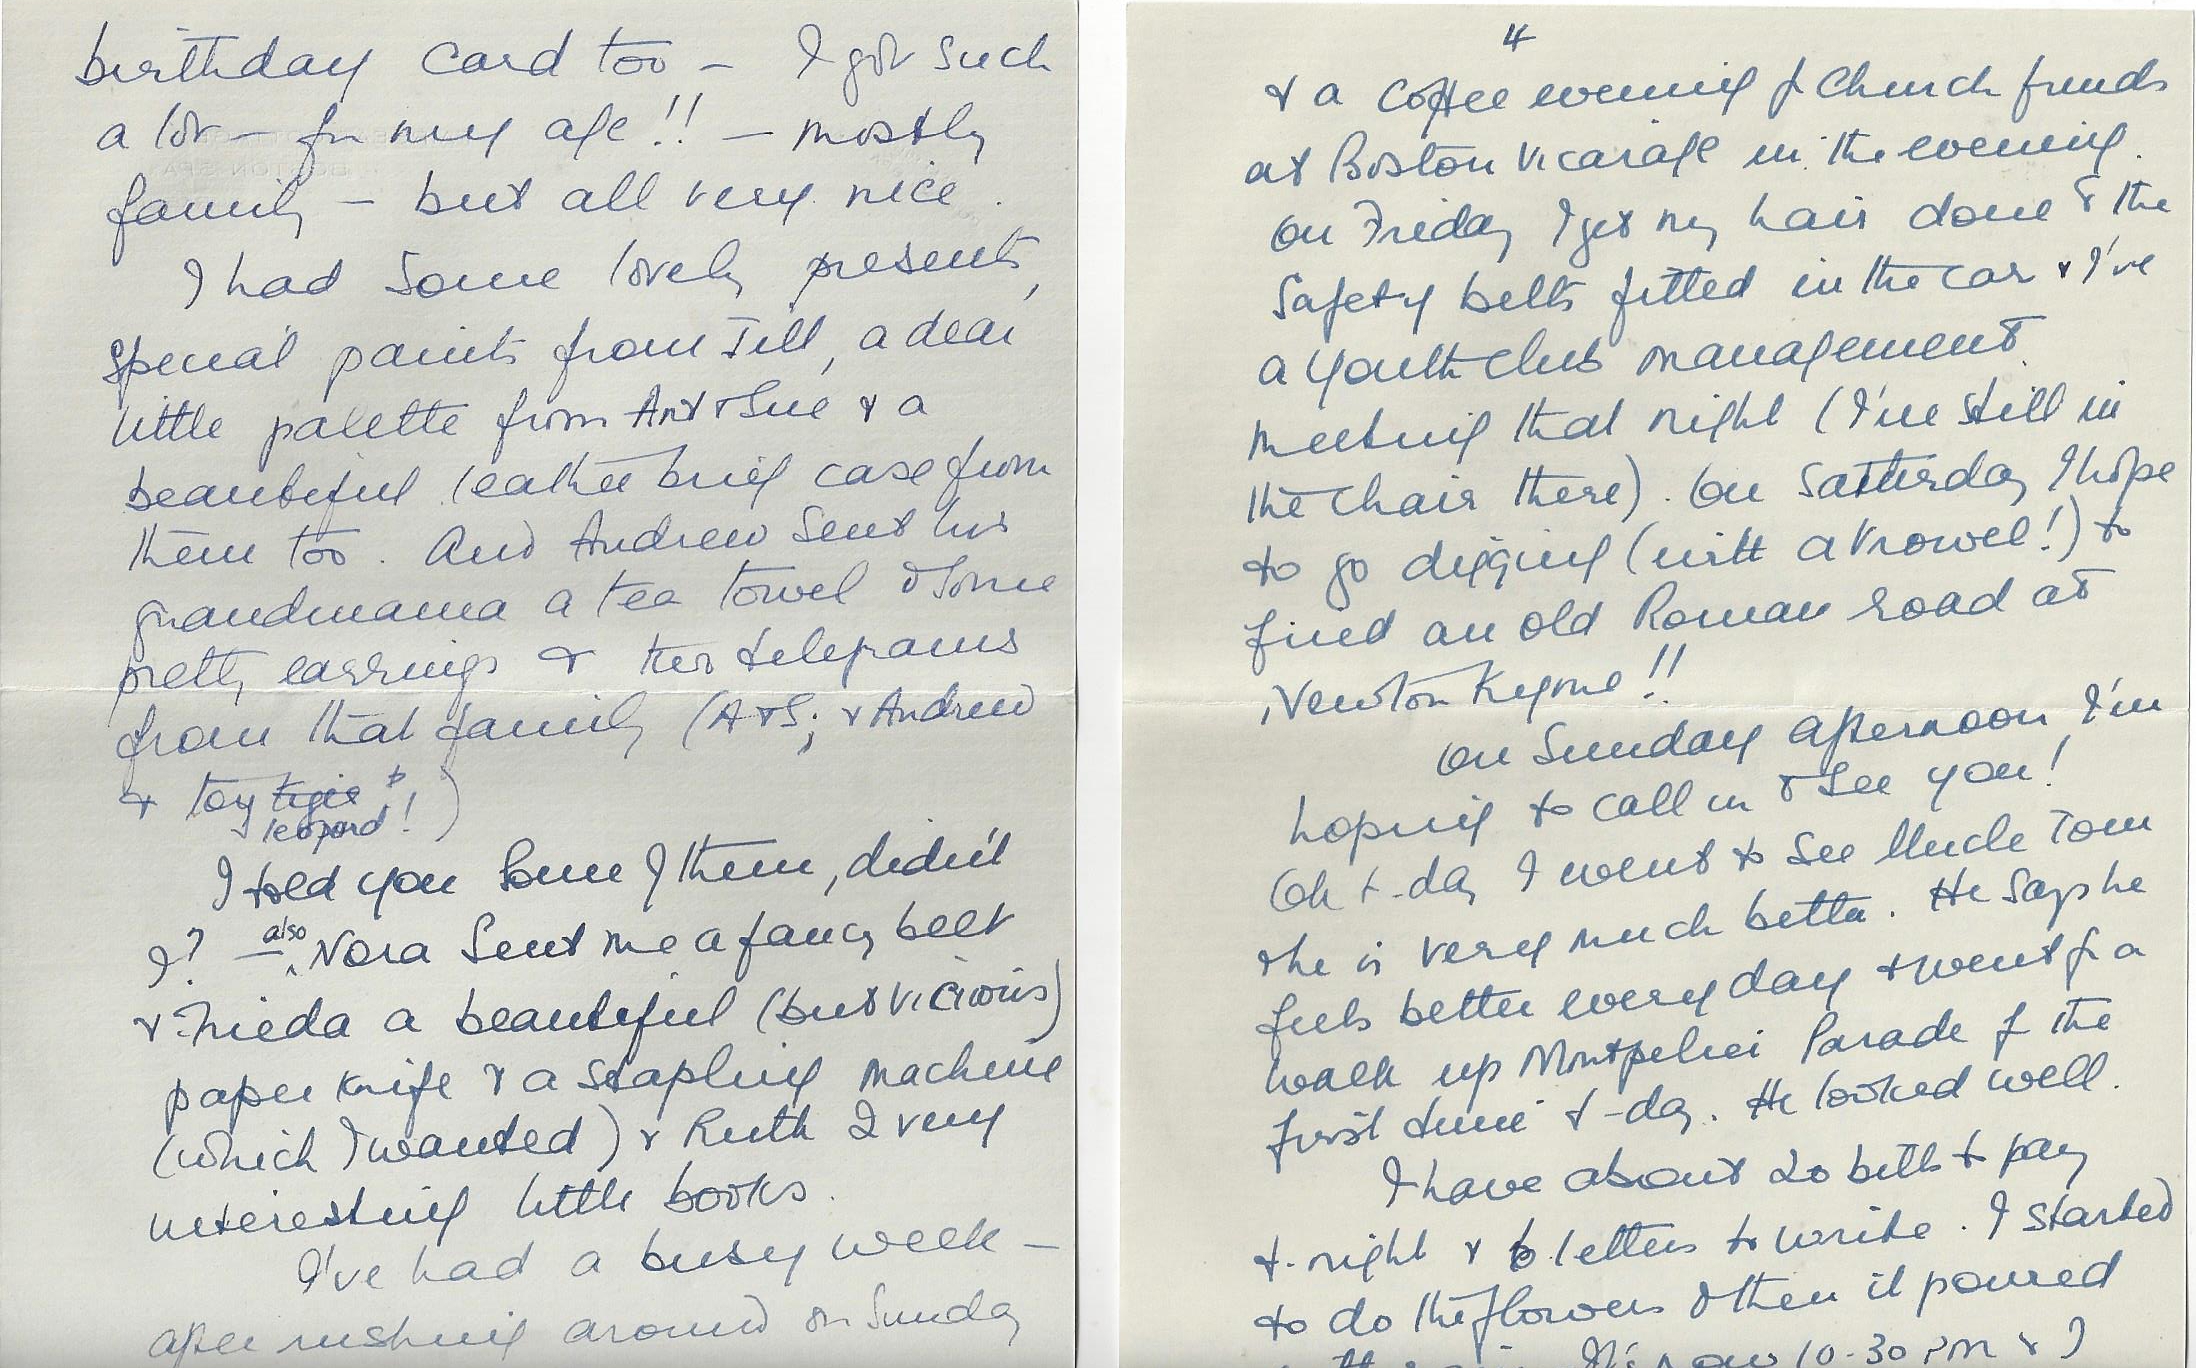 birthday card too – I got such
a lot – for my age!! – mostly
family – but all very nice.
I had some lovely presents,
special paints from Jill, a dear
little palette from Ant & Sue & a
beautiful leather brief case from
them too. And Andrew sent his
grandmama a tea towel & some
pretty earrings & two telegrams
from that family (A & S; & Andrew
& toy tigie
leopard!)
I told you some of them, didn't
I? – also Nora sent me a fancy belt
& Frieda a beautiful (but vicious)
paper knife & a stapling machine
(which I wanted) & Ruth 2 very
interesting little books.
I've had a busy week –
after rushing around on Sunday
4
& a coffee evening of Church friends
at Boston Vicarage in the evening.
On Friday I get my hair done & the
safety belts fitted in the car & I've
a youth club management
meeting that night (I'm still in
the chair there). On Satturday I hope
to go digging (with a trowel!) to
find an old Roman road at
Newton Kyme!!
On Sunday afternoon, I'm
hoping to call in & see you!
Oh t-day I went to see Uncle Tom
& he is very much better. He says he
feels better every day & went for a
walk up Montpelier Parade for the
first time t-day. He looked well.
I have about 20 bills to pay
t-night & 6 letters to write. I started
to do the flowers & then it poured
It's now 10-30 PM & I